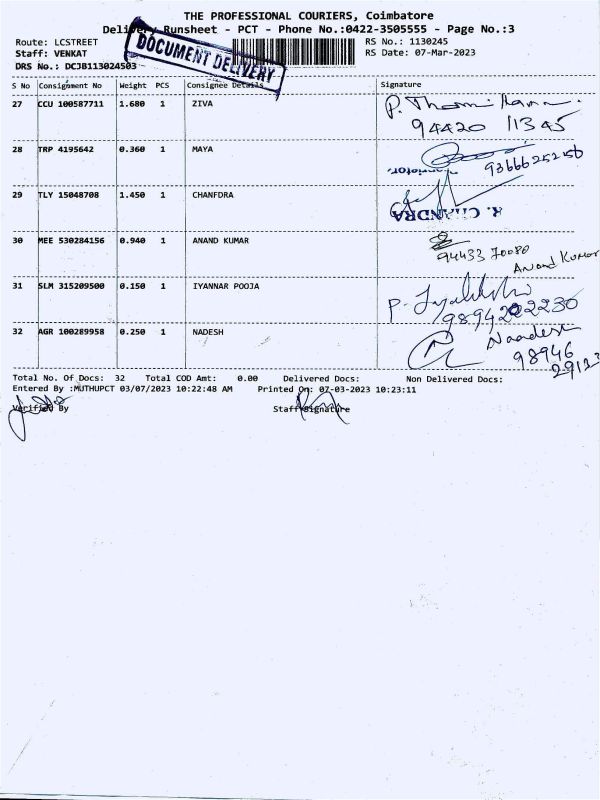 THE PROFESSIONAL COURIERS, Coimbatore
Delivery Runsheet - PCT - Phone No.:0422-3505555 - Page No.:3
Route: LCSTREET
RS No.: 1130245
Staff: VENKAT
RS Date: 07-Mar-2023
DRS No.: DCJB113024503
DOCUMENT DELIVERY
S No Consignment No Weight PCS Consignee Details Signature
27 CCU 100587711 1.680 1 ZIVA
94420 11345
28 TRP 4195642 0.360 1 MAYA
9366625256
29 TLY 15048708 1.450 1 CHANFDRA
R. CHANDRA
30 MEE 530284156 0.940 1 ANAND KUMAR
94433 70080
Anand Kumar
31 SLM 315209500 0.150 1 IYANNAR POOJA
32 AGR 100289958 0.250 1 NADESH
98946
Total No. Of Docs: 32 Total COD Amt: 0.00 Delivered Docs: Non Delivered Docs:
Entered By :MUTHUPCT 03/07/2023 10:22:48 AM Printed On: 07-03-2023 10:23:11
Verified By Staff Signature